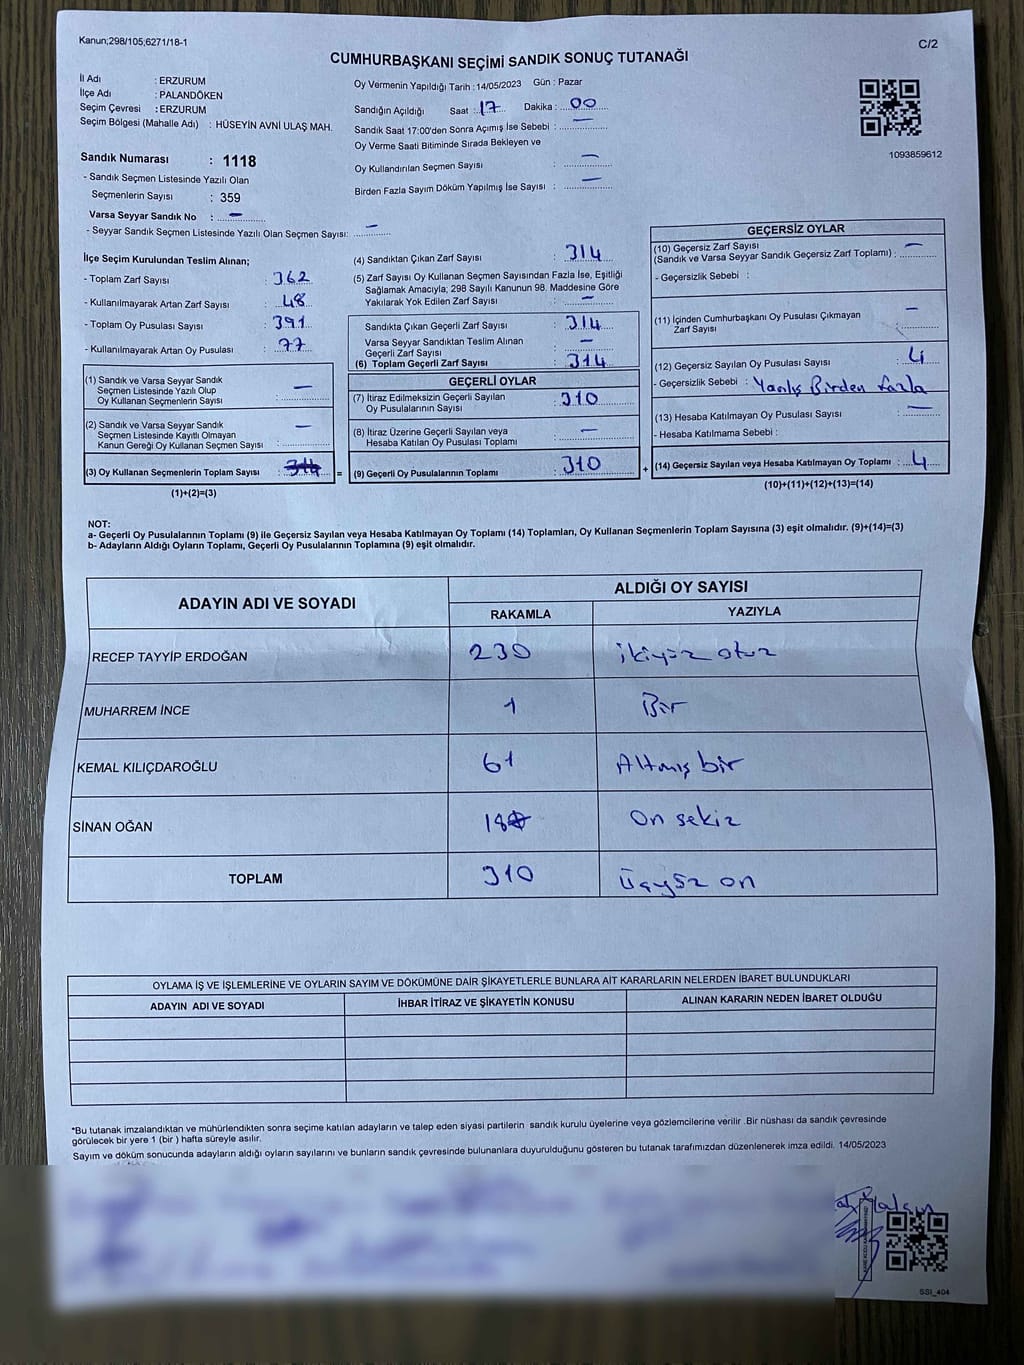 Kanun;298/105;6271/18-1
C/2
CUMHURBAŞKANI SEÇİMİ SANDIK SONUÇ TUTANAĞI
İl Adı : ERZURUM
İlçe Adı : PALANDÖKEN
Seçim Çevresi : ERZURUM
Seçim Bölgesi (Mahalle Adı) : HÜSEYİN AVNİ ULAŞ MAH.
Sandık Numarası : 1118
- Sandık Seçmen Listesinde Yazılı Olan
Seçmenlerin Sayısı : 359
Varsa Seyyar Sandık No : –
- Seyyar Sandık Seçmen Listesinde Yazılı Olan Seçmen Sayısı: –
Oy Vermenin Yapıldığı Tarih : 14/05/2023 Gün : Pazar
Sandığın Açıldığı Saat : 17 Dakika : 00
Sandık Saat 17:00'den Sonra Açımış İse Sebebi : –
Oy Verme Saati Bitiminde Sırada Bekleyen ve
Oy Kullandırılan Seçmen Sayısı : –
Birden Fazla Sayım Döküm Yapılmış İse Sayısı : –
1093859612
İlçe Seçim Kurulundan Teslim Alınan;
- Toplam Zarf Sayısı : 362
- Kullanılmayarak Artan Zarf Sayısı : 48
- Toplam Oy Pusulası Sayısı : 391
- Kullanılmayarak Artan Oy Pusulası : 77
(1) Sandık ve Varsa Seyyar Sandık
Seçmen Listesinde Yazılı Olup
Oy Kullanan Seçmenlerin Sayısı : –
(2) Sandık ve Varsa Seyyar Sandık
Seçmen Listesinde Kayıtlı Olmayan
Kanun Gereği Oy Kullanan Seçmen Sayısı : –
(3) Oy Kullanan Seçmenlerin Toplam Sayısı : 314 =
(1)+(2)=(3)
(4) Sandıktan Çıkan Zarf Sayısı : 314
(5) Zarf Sayısı Oy Kullanan Seçmen Sayısından Fazla İse, Eşitliği
Sağlamak Amacıyla; 298 Sayılı Kanunun 98. Maddesine Göre
Yakılarak Yok Edilen Zarf Sayısı : –
Sandıkta Çıkan Geçerli Zarf Sayısı : 314
Varsa Seyyar Sandıktan Teslim Alınan
Geçerli Zarf Sayısı : –
(6) Toplam Geçerli Zarf Sayısı : 314
GEÇERLİ OYLAR
(7) İtiraz Edilmeksizin Geçerli Sayılan
Oy Pusulalarının Sayısı : 310
(8) İtiraz Üzerine Geçerli Sayılan veya
Hesaba Katılan Oy Pusulası Toplamı : –
(9) Geçerli Oy Pusulalarının Toplamı : 310 +
GEÇERSİZ OYLAR
(10) Geçersiz Zarf Sayısı
(Sandık ve Varsa Seyyar Sandık Geçersiz Zarf Toplamı) : –
- Geçersizlik Sebebi :
(11) İçinden Cumhurbaşkanı Oy Pusulası Çıkmayan
Zarf Sayısı : –
(12) Geçersiz Sayılan Oy Pusulası Sayısı : 4
- Geçersizlik Sebebi : Yanlış Birden fazla
(13) Hesaba Katılmayan Oy Pusulası Sayısı : –
- Hesaba Katılmama Sebebi :
(14) Geçersiz Sayılan veya Hesaba Katılmayan Oy Toplamı : 4
(10)+(11)+(12)+(13)=(14)
NOT:
a- Geçerli Oy Pusulalarının Toplamı (9) ile Geçersiz Sayılan veya Hesaba Katılmayan Oy Toplamı (14) Toplamları, Oy Kullanan Seçmenlerin Toplam Sayısına (3) eşit olmalıdır. (9)+(14)=(3)
b- Adayların Aldığı Oyların Toplamı, Geçerli Oy Pusulalarının Toplamına (9) eşit olmalıdır.
ADAYIN ADI VE SOYADI
ALDIĞI OY SAYISI
RAKAMLA YAZIYLA
RECEP TAYYİP ERDOĞAN 230 ikiyüz otuz
MUHARREM İNCE 1 Bir
KEMAL KILIÇDAROĞLU 61 Altmış bir
SİNAN OĞAN 18 On sekiz
TOPLAM 310 Üçyüz on
OYLAMA İŞ VE İŞLEMLERİNE VE OYLARIN SAYIM VE DÖKÜMÜNE DAİR ŞİKAYETLERLE BUNLARA AİT KARARLARIN NELERDEN İBARET BULUNDUKLARI
ADAYIN ADI VE SOYADI İHBAR İTİRAZ VE ŞİKAYETİN KONUSU ALINAN KARARIN NEDEN İBARET OLDUĞU
*Bu tutanak imzalandıktan ve mühürlendikten sonra seçime katılan adayların ve talep eden siyasi partilerin sandık kurulu üyelerine veya gözlemcilerine verilir .Bir nüshası da sandık çevresinde
görülecek bir yere 1 (bir ) hafta süreyle asılır.
Sayım ve döküm sonucunda adayların aldığı oyların sayılarını ve bunların sandık çevresinde bulunanlara duyurulduğunu gösteren bu tutanak tarafımızdan düzenlenerek imza edildi. 14/05/2023
SSI_404